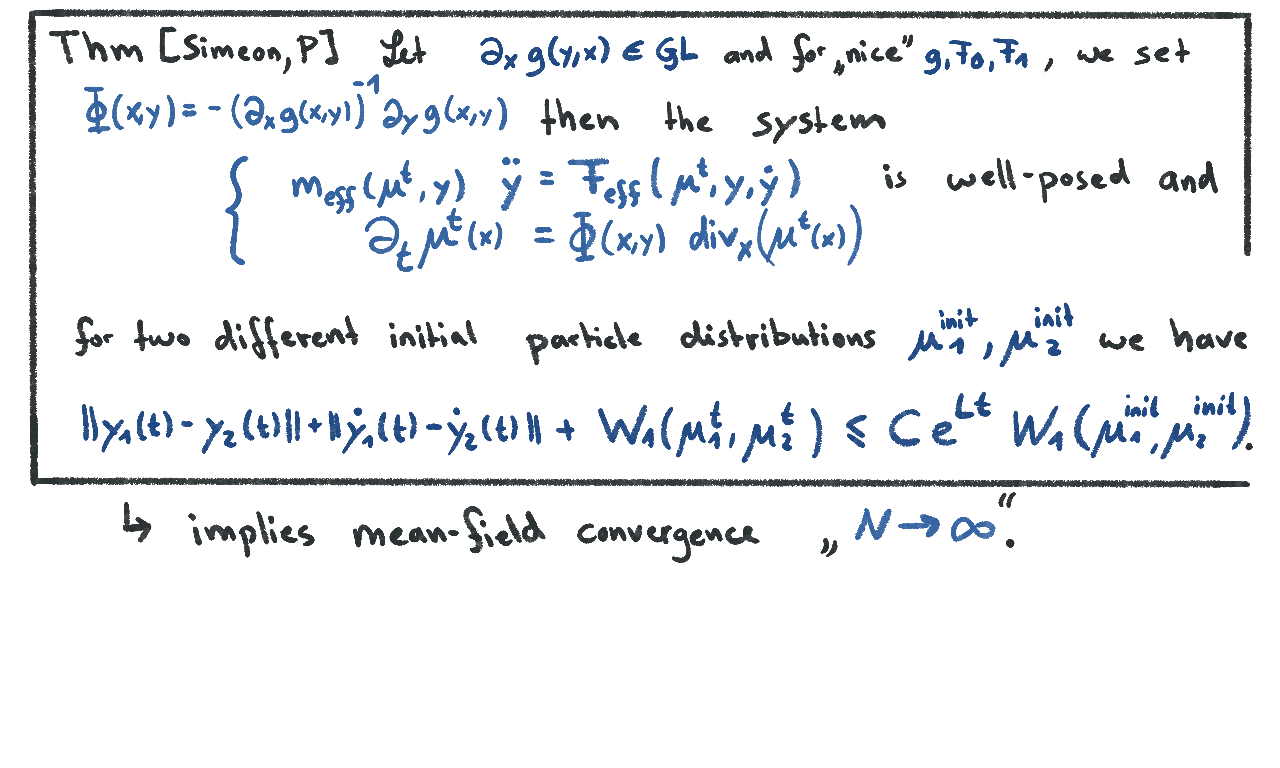 Thm [Simeon, P] Let ∂ₓ g(y,x) ∈ GL and for „nice" g, F₀, F₁, we set
Φ(x,y) = - (∂ₓg(x,y))⁻¹ ∂ᵧ g(x,y) then the system
{ m_eff(μᵗ, y) ÿ = F_eff(μᵗ, y, ẏ) is well-posed and
∂ₜ μᵗ(x) = Φ(x,y) divₓ(μᵗ(x))
for two different initial particle distributions μ₁^init, μ₂^init we have
||y₁(t) - y₂(t)|| + ||ẏ₁(t) - ẏ₂(t)|| + W₁(μ₁ᵗ, μ₂ᵗ) ≤ C e^{Lt} W₁(μ₁^init, μ₂^init).
↳ implies mean-field convergence „N → ∞".